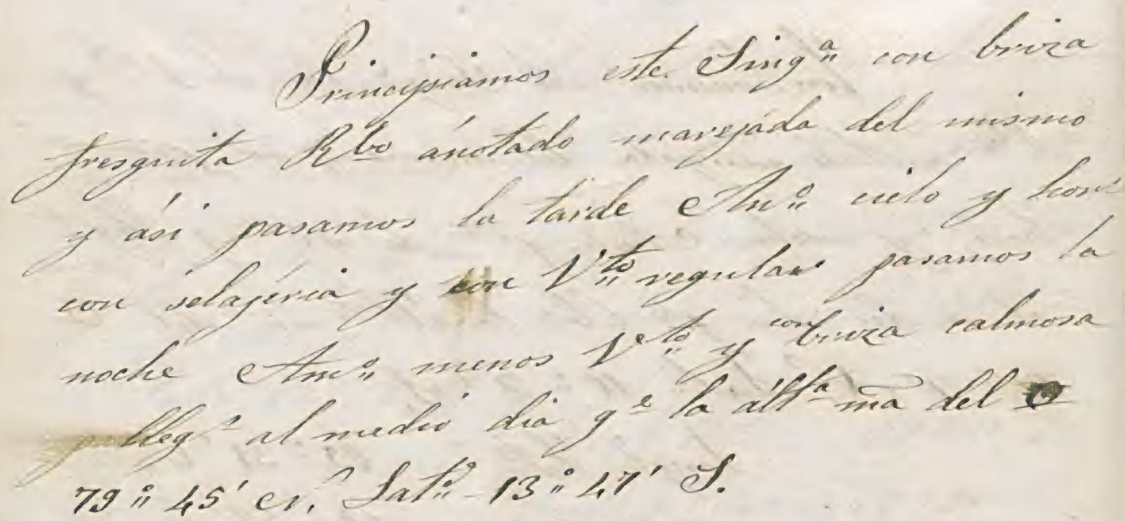 Principiamos este Sing.ª con briza
fresquita R.bo ánotado marejáda del mismo
y ási pasamos la tarde An.º cielo y hor.s
con selajéria y con V.to regular pasamos la
noche Am.º menos V.to y con briza calmosa
y lleg.s al medio dia q.e la ált.a m̃a del ☉
79º 45' N. Lat.º 13º 47' S.